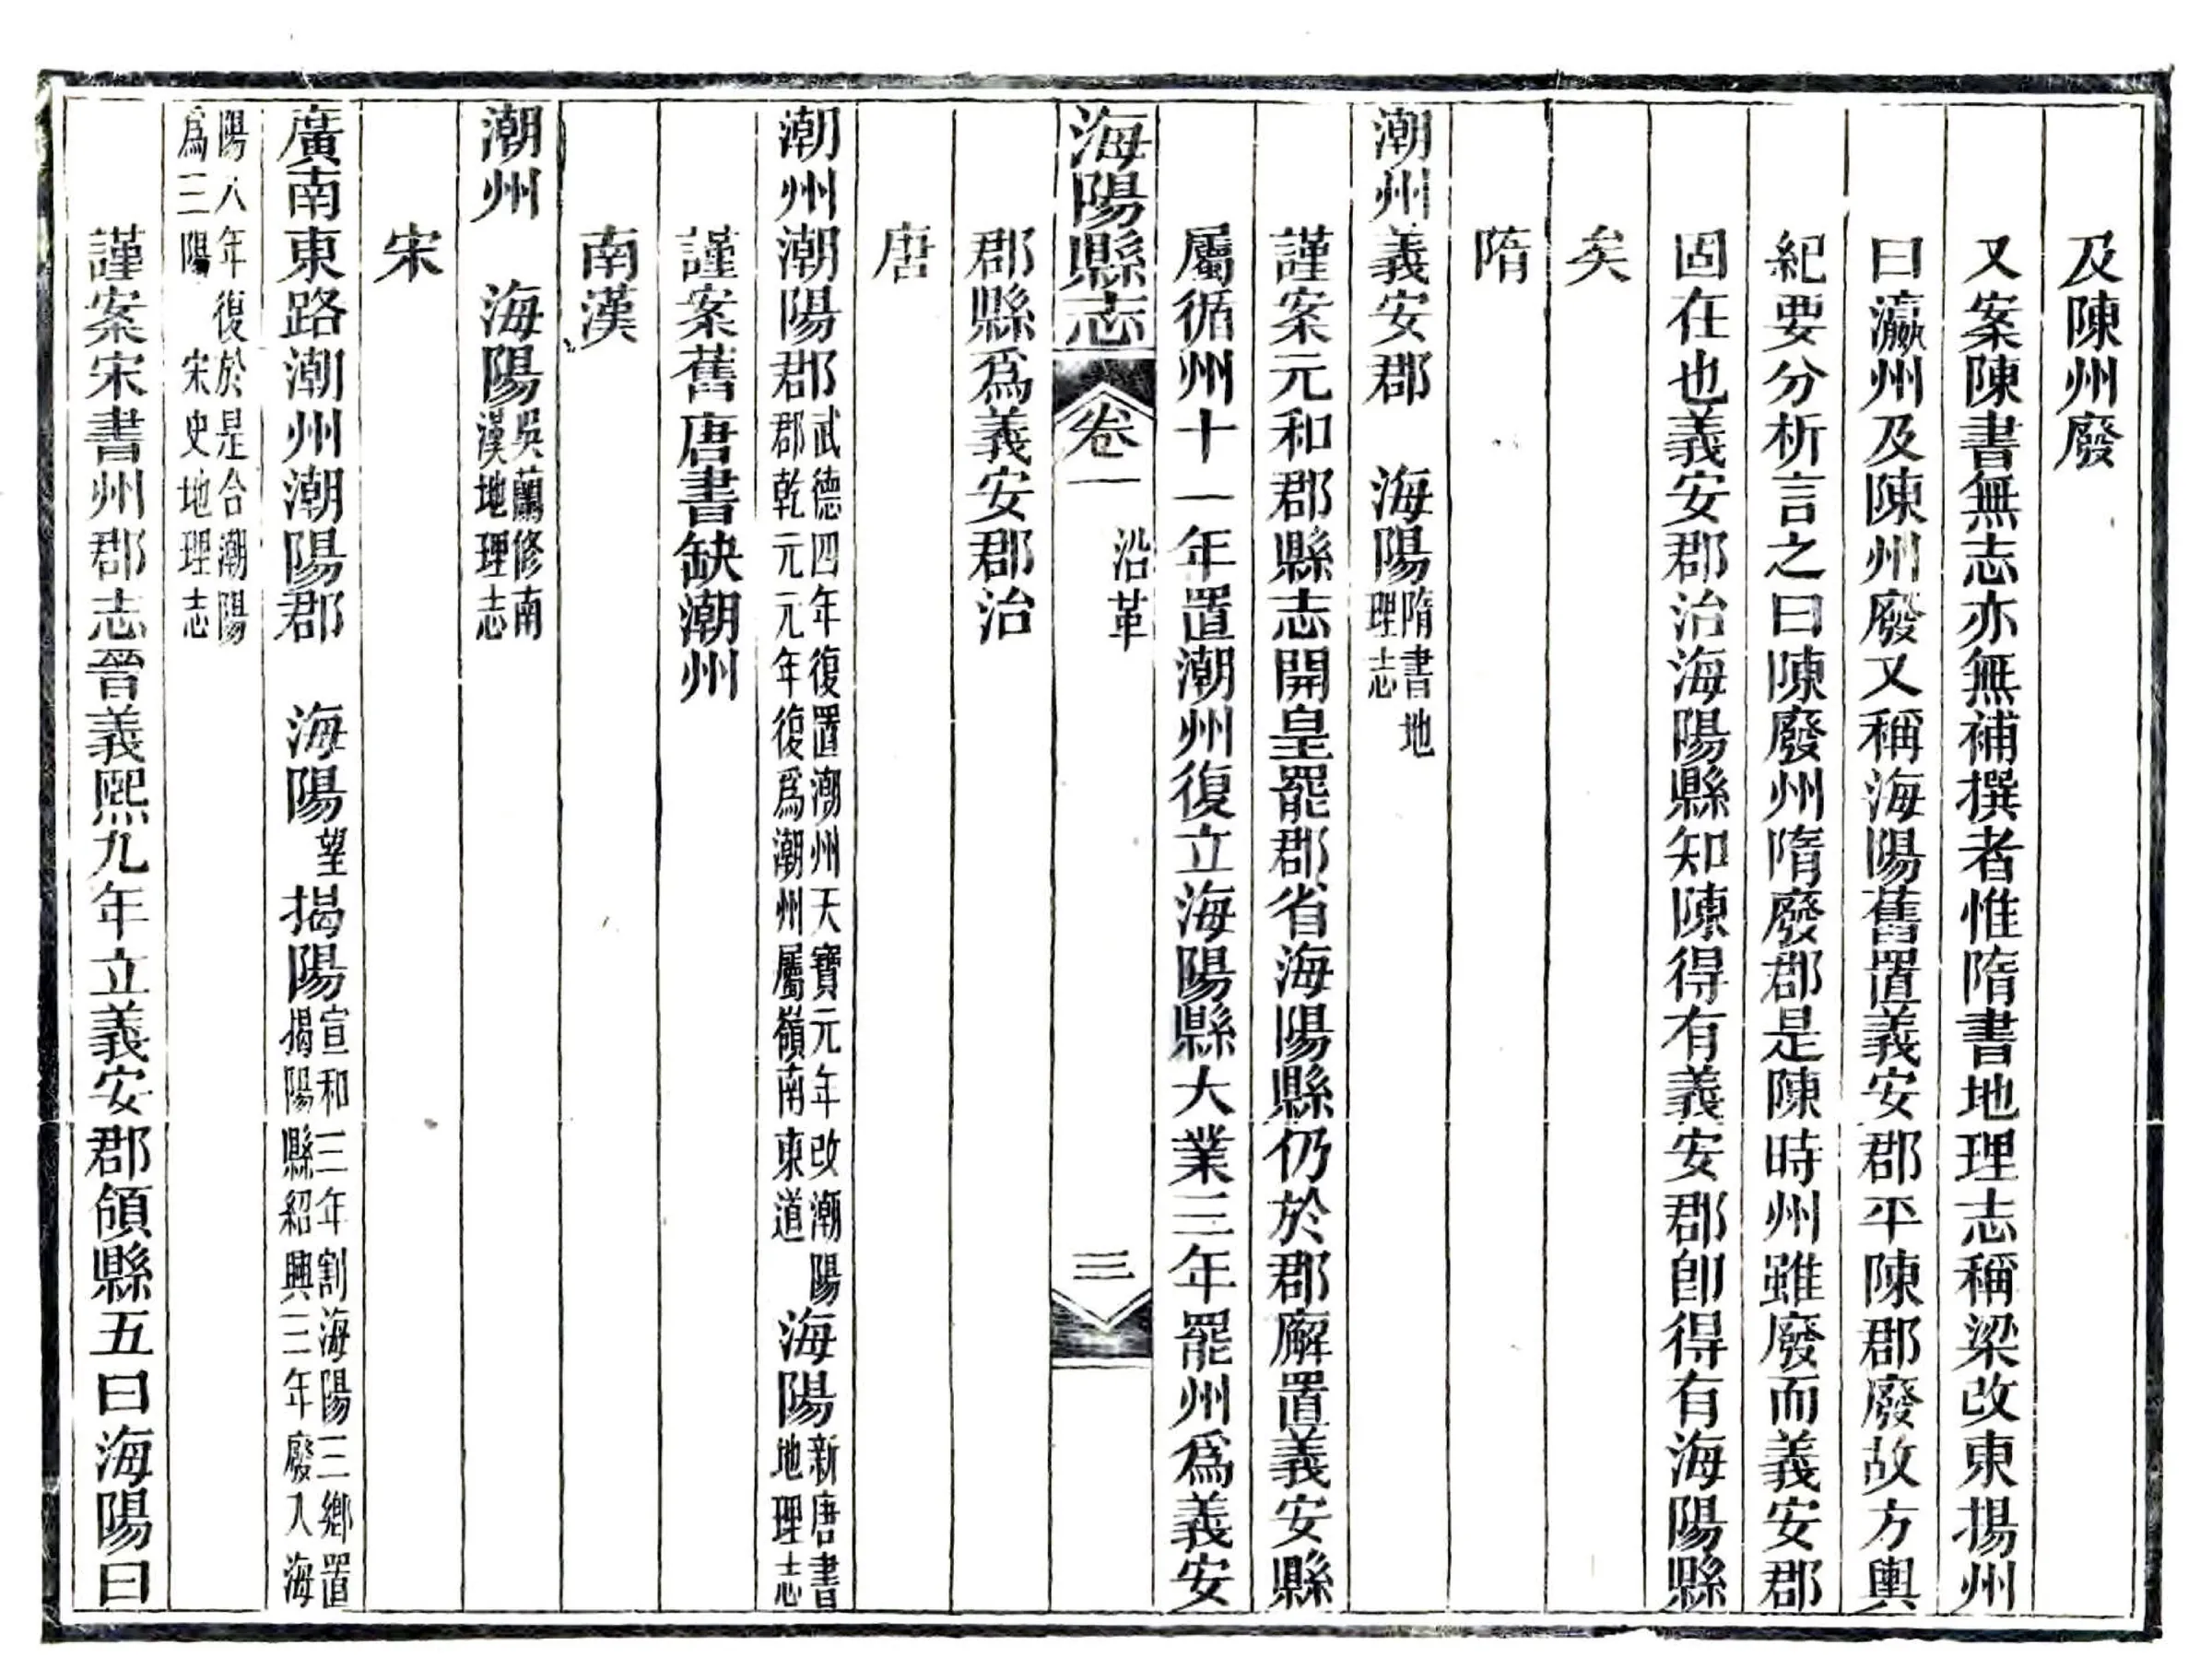 及陳州廢
又案陳書無志亦無補撰者惟隋書地理志稱梁改東揚州
曰瀛州及陳州廢又稱海陽舊置義安郡平陳郡廢故方輿
紀要分析言之曰陳廢州隋廢郡是陳時州雖廢而義安郡
固在也義安郡治海陽縣知陳得有義安郡卽得有海陽縣
矣
隋
潮州義安郡　海陽隋書地理志
謹案元和郡縣志開皇罷郡省海陽縣仍於郡廨置義安縣
屬循州十一年置潮州復立海陽縣大業三年罷州爲義安
海陽縣志　卷一　沿革　三
郡縣爲義安郡治
唐
潮州潮陽郡武德四年復置潮州天寶元年改潮陽郡乾元元年復爲潮州屬嶺南東道海陽新唐書地理志
謹案舊唐書缺潮州
南漢
潮州　海陽吳蘭修南漢地理志
宋
廣南東路潮州潮陽郡　海陽望揭陽宣和三年割海陽三鄉置揭陽縣紹興三年廢入海
陽八年復於是合潮陽爲三陽　宋史地理志
謹案宋書州郡志晉義熙九年立義安郡領縣五曰海陽曰